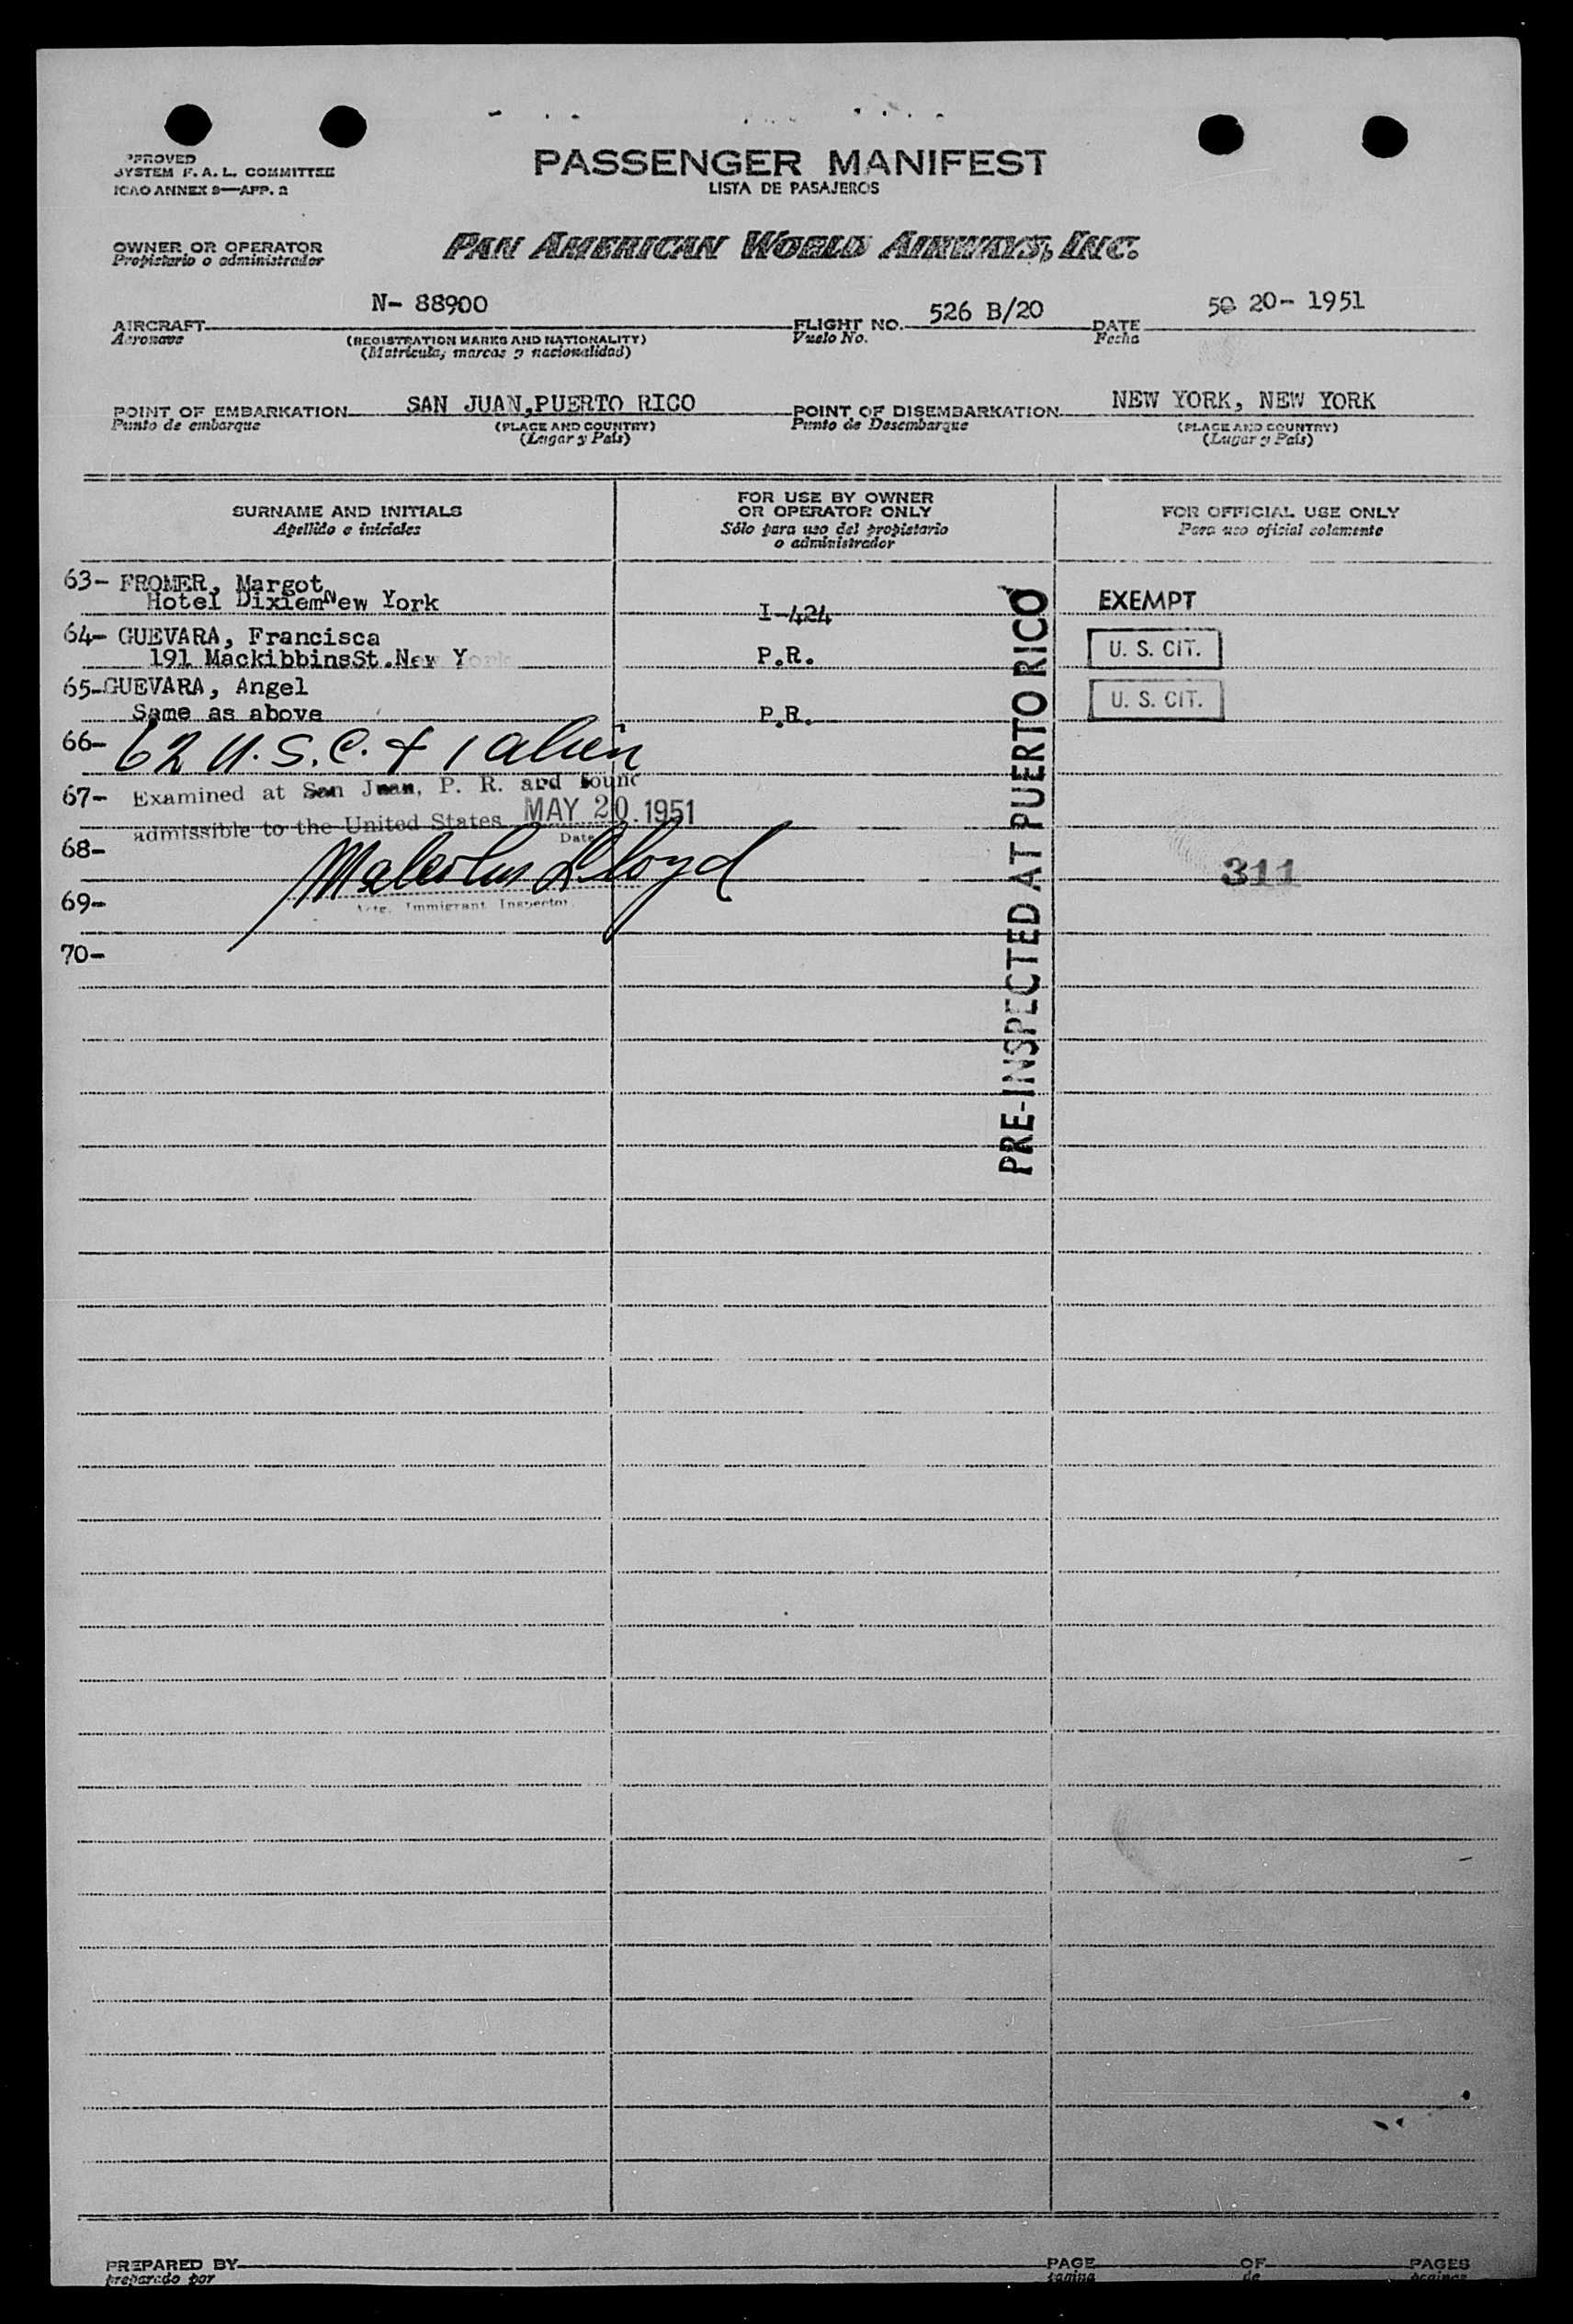 PPROVED
SYSTEM F. A. L. COMMITTEE
ICAO ANNEX 9—APP. 2
PASSENGER MANIFEST
LISTA DE PASAJEROS
OWNER OR OPERATOR
Propietario o administrador
PAN AMERICAN WORLD AIRWAYS, INC.
AIRCRAFT N- 88900
Aeronave
(REGISTRATION MARKS AND NATIONALITY)
(Matrícula, marcas y nacionalidad)
FLIGHT NO. 526 B/20
Vuelo No.
DATE 50 20- 1951
Fecha
POINT OF EMBARKATION SAN JUAN,PUERTO RICO
Punto de embarque
(PLACE AND COUNTRY)
(Lugar y País)
POINT OF DISEMBARKATION NEW YORK, NEW YORK
Punto de Desembarque
(PLACE AND COUNTRY)
(Lugar y País)
SURNAME AND INITIALS
Apellido e iniciales
FOR USE BY OWNER
OR OPERATOR ONLY
Sólo para uso del propietario
o administrador
FOR OFFICIAL USE ONLY
Para uso oficial solamente
63- FROMER, Margot
Hotel DixiemNew York I-424 EXEMPT
64- GUEVARA, Francisca
191 MackibbinsSt.New York P.R. U. S. CIT.
65-GUEVARA, Angel
Same as above P.R. U. S. CIT.
66- 62 U.S.C. & 1 alien
67- Examined at San Juan, P. R. and found
admissible to the United States MAY 20.1951
Date
68-
Malcolm Lloyd
311
69-
Actg. Immigrant Inspector.
70-
PRE-INSPECTED AT PUERTO RICO
PREPARED BY
preparado por
PAGE OF PAGES
página de páginas